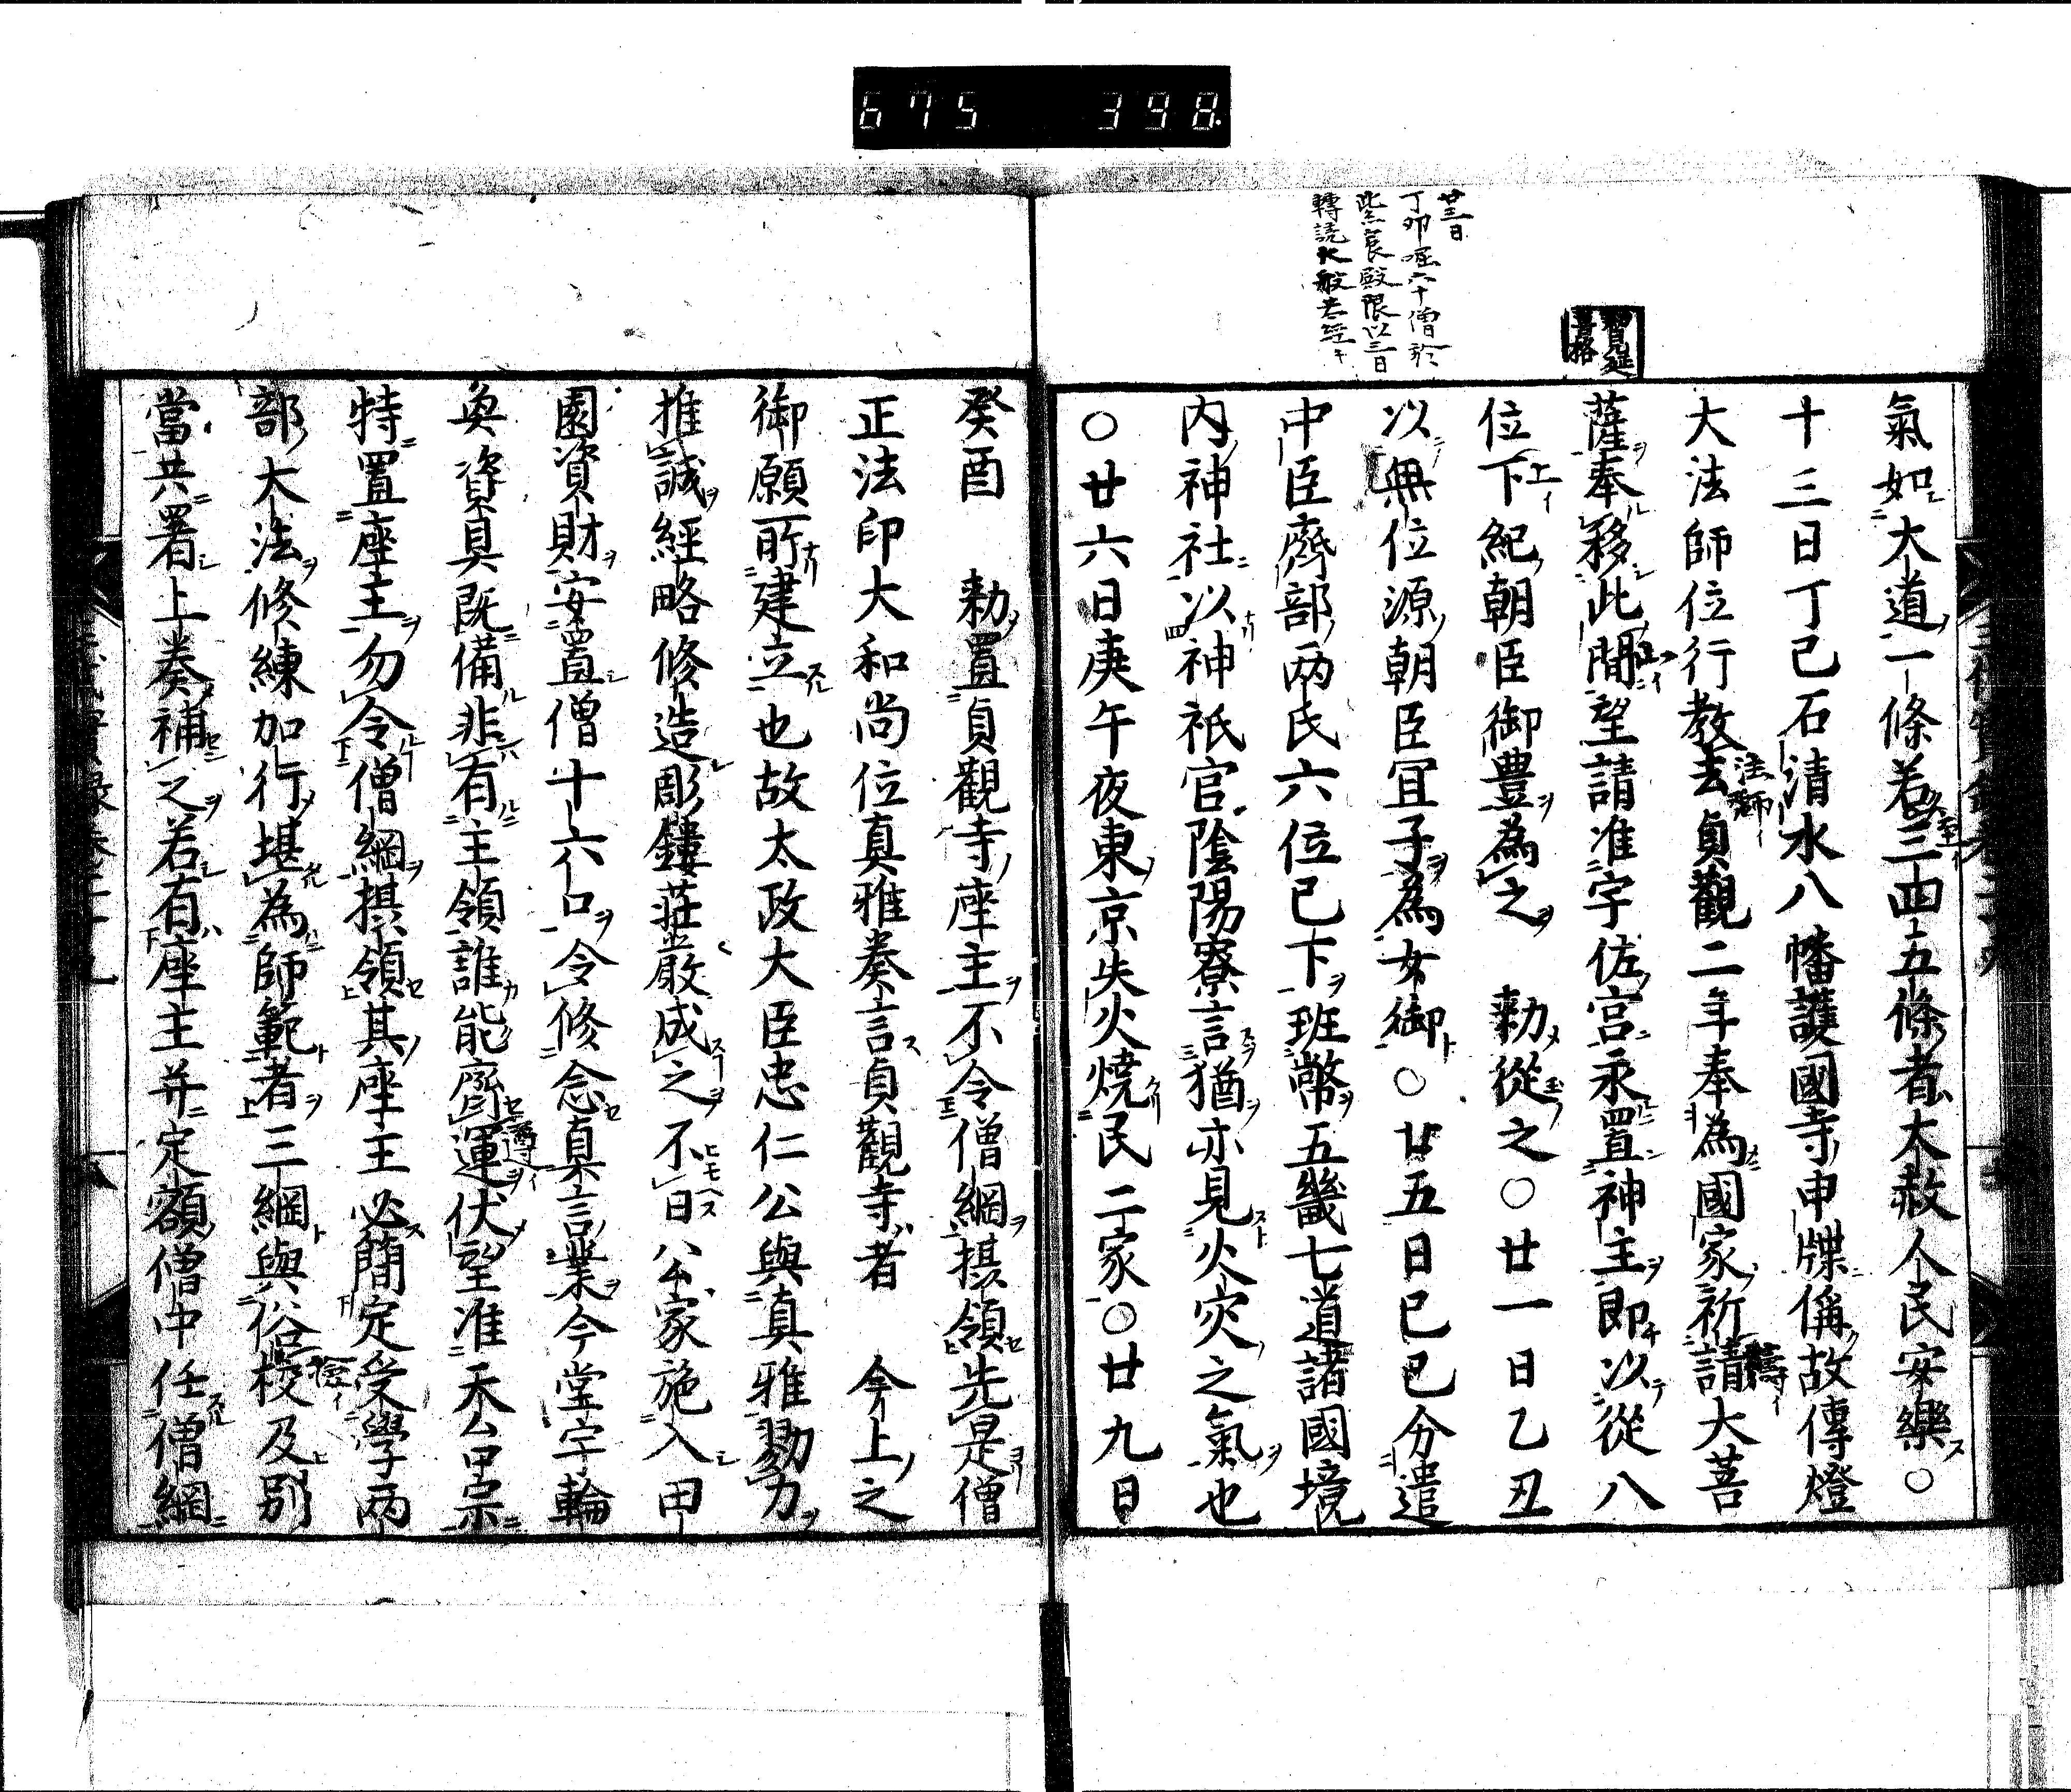 675 398
廿三日
丁卯屈六十僧於
紫宸殿限以三日
轉読大般若経
氣如大道一條若三四五條者大赦人民安樂○
十三日丁巳石清水八幡護國寺申牒偁故傳燈
大法師位行教去貞觀二年奉為國家祈請大菩
薩奉移此間望請准宇佐宮永置神主即以從八
位下紀朝臣御豊為之 勅從之○廿一日乙丑
以無位源朝臣宜子為女御○廿五日己巳分遣
中臣齋部兩氏六位已下班幣五畿七道諸國境
内神社以神祇官陰陽寮言猶亦見火灾之氣也
○廿六日庚午夜東京失火焼民二家○廿九日
癸酉 勅置貞觀寺座主不令僧綱摂領先是僧
正法印大和尚位真雅奏言貞觀寺者 今上之
御願所建立也故太政大臣忠仁公與真雅勠力
推誠經略修造彫鏤荘嚴成之不日公家施入田
園資財安置僧十六口令修念真言業今堂宇輪
奐資具既備非有主領誰能齋運伏望准天台宗
特置座主勿令僧綱摂領其座主必簡定受學兩
部大法修練加行堪為師範者三綱與俗校及別
當共署上奏補之若有座主并定額僧中任僧綱